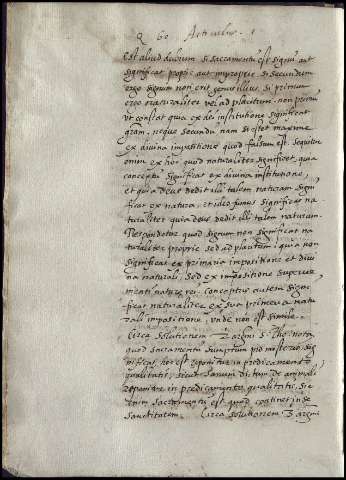 Q. 60. Articulus. 1
Est aliud dubium si sacramentum est signum aut
significat propie aut impropie, si secundum
ergo signum non erit genus illius, si primum
ergo naturaliter vel ad placitum. non primum
ut constat quia ex dei institutione significat
gram. neque secundum nam si esset maxime
ex divina impositione quod falsum est. sequitur
enim ex hoc quod naturaliter significet, quia
conceptus significat ex divina institutione,
et quia deus dedit illi talem naturam signi
ficat ex natura. et ideo fumus significat na
turaliter quia deus dedit illi talem naturam.
Respondetur quod signum non significat na
turaliter proprie sed ad placitum. quia non
significat ex primaria impositione et divi
na naturali, sed ex impositione superve
nienti naturae rei. Conceptus autem signi
ficat naturaliter ex sua primeva natu
rali impositione, unde non est simile.
Circa solutionem 1 argumenti S. Tho. nota
quod sacramentum sumptum pro misterio, sig
est reponitur in predicamento
qualitatis, sicut sanum dictum de animali
reponitur in predicamento qualitatis, sic
enim sacramentum est quod continet in se
sanctitatem. Circa solutionem 2 argumenti